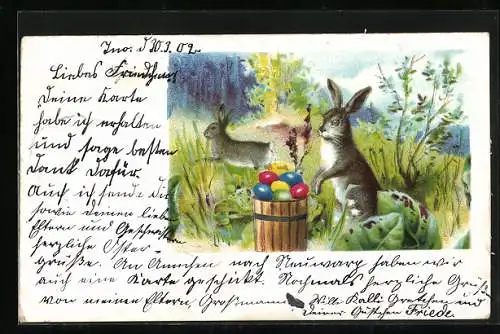 d 30.3.02
Liebes Friedchen
Deine Karte
habe ich erhalten
und sage besten
Dank dafür.
Auch ich sende dir
sowie deinen lieben
Eltern und Geschwistern
herzliche Oster-
grüße. An Annchen nach Neuwarp haben wir
auch eine Karte geschickt. Nochmals herzliche Grüße
von meinen Eltern, Großmama, Willi Kalli Gretchen und
Deiner Friede